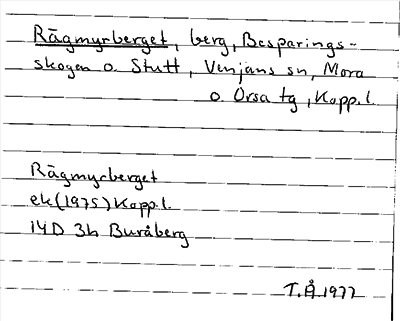 Rågmyrberget, berg, Besparings-
skogen o. Stutt, Venjans sn, Mora
o. Orsa tg, Kopp.l.
Rågmyrberget
ek(1975) Kopp.l.
14D 3h Buråberg
T.Å 1977